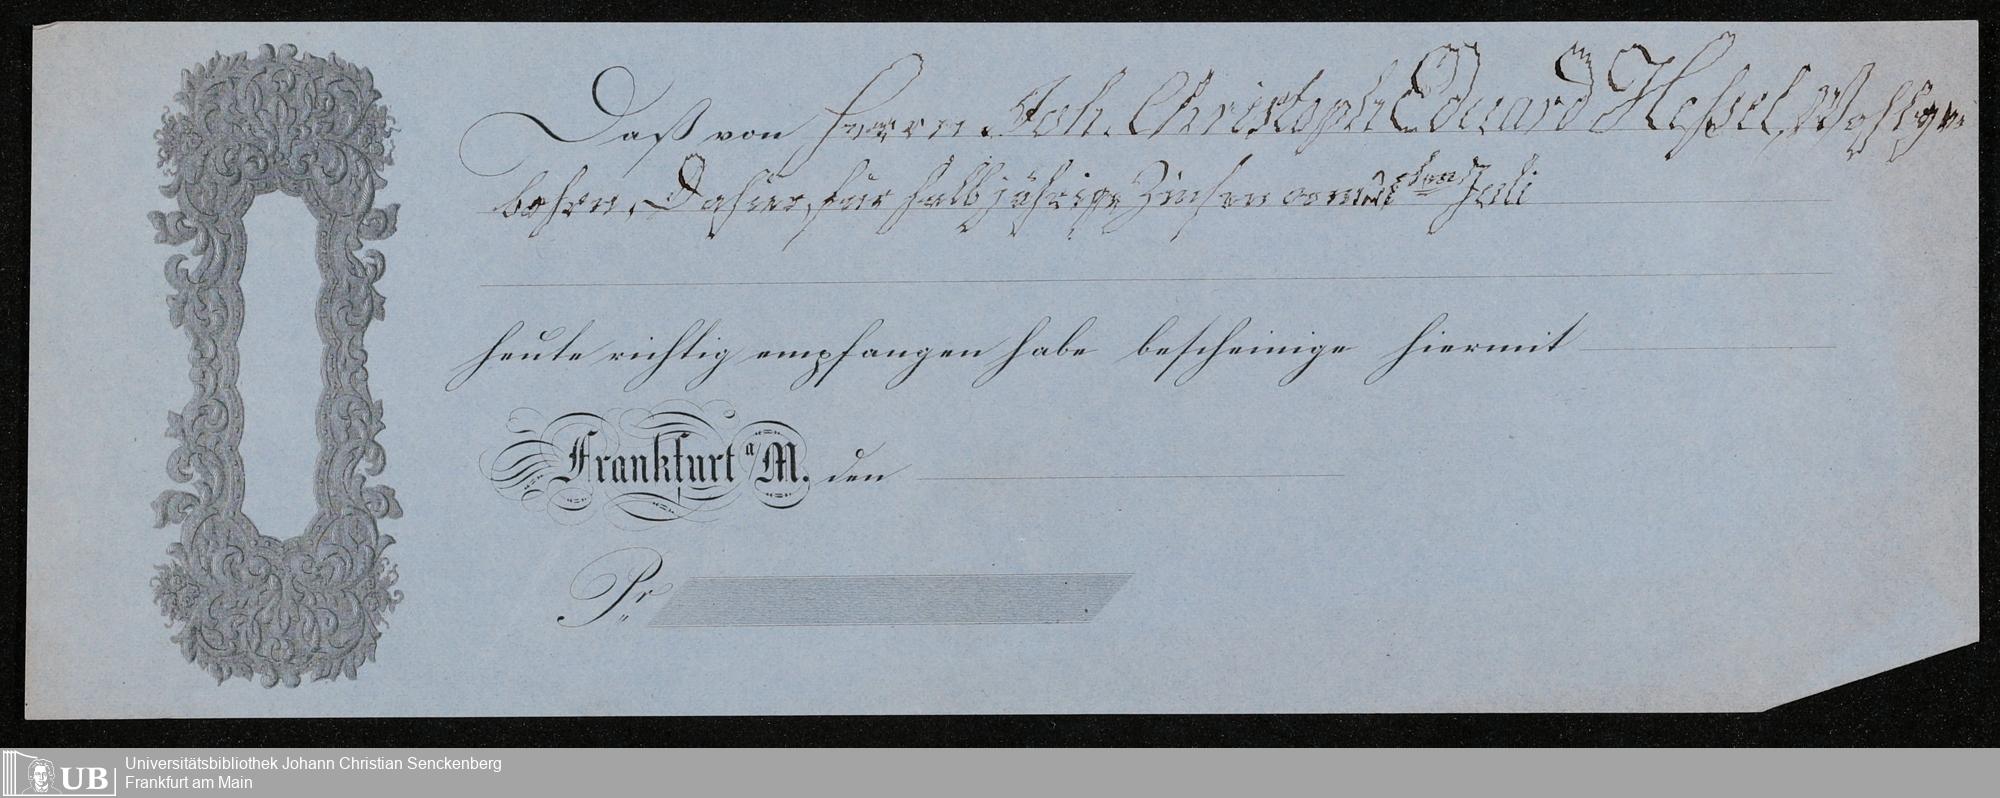 Daß von Herrn Joh. Christoph Eduard Hessel, Wohlge
bohrn, Dahier, für halbjährige Zinsen vom 1ten Juli
heute richtig empfangen habe bescheinige hiermit
Frankfurt a/M. den
Pr
UB Universitätsbibliothek Johann Christian Senckenberg
Frankfurt am Main